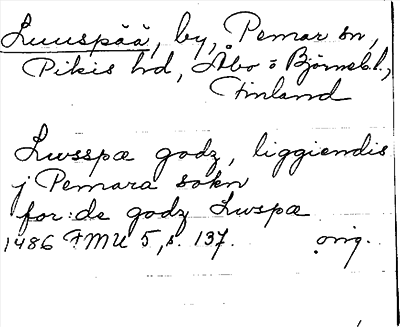 Luuspää, by, Pemar sn,
Pikis hd, Åbo o Björneb. l.,
Finland
Lwsspæ godz, liggiendis
j Pemara sokn
for: de godz Lwspæ
1486 FMU 5, s. 137. orig.